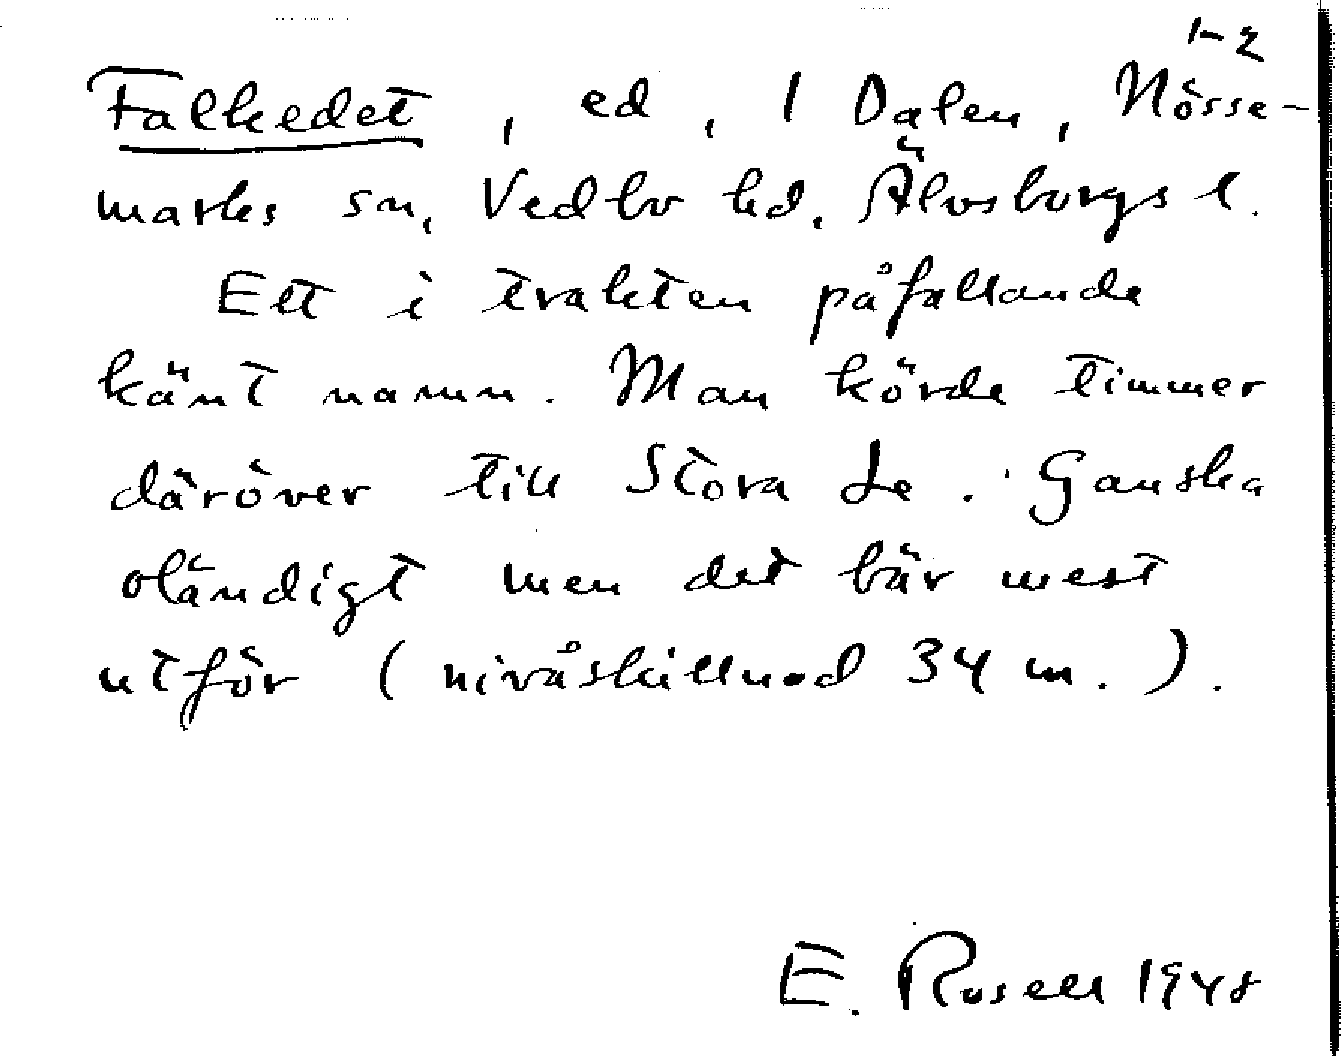 1-2
Falkedet, ed, 1 Dalen, Nösse-
marks sn, Vedbo hd, Älvsborgs l.
Ett i trakten påfallande
känt namn. Man körde timmer
däröver till Stora Le. Ganska
oländigt men det bär mest
utför (nivåskillnad 34 m.).
E. Rosell 1948